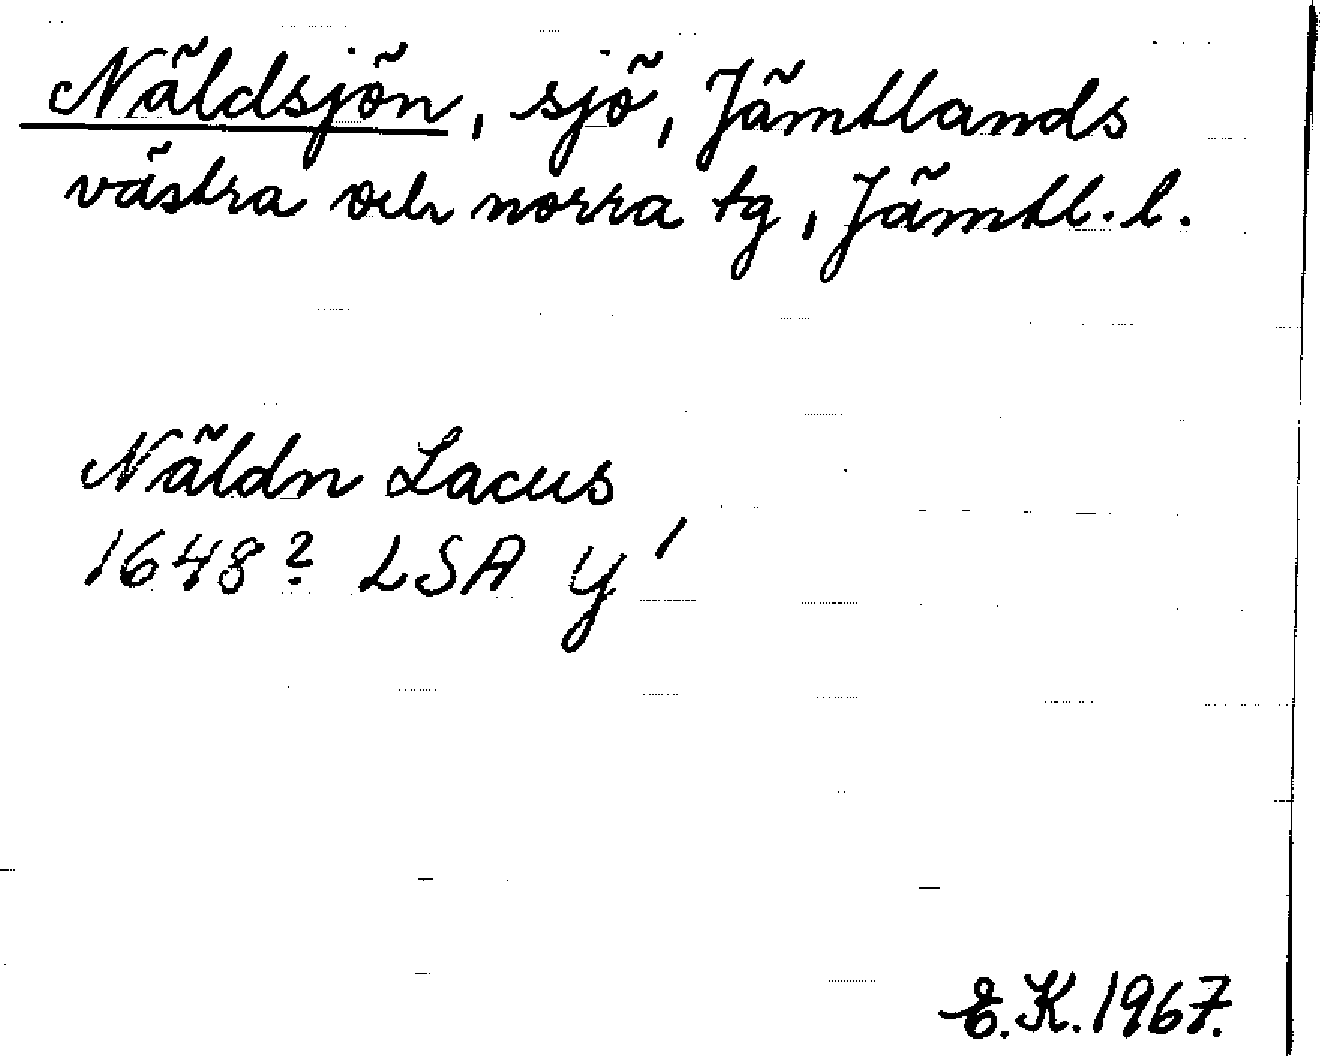 Näldsjön, sjö, Jämtlands
västra och norra tg, Jämtl. l.
Näldn Lacus
1648? LSA y'
E.K. 1967.